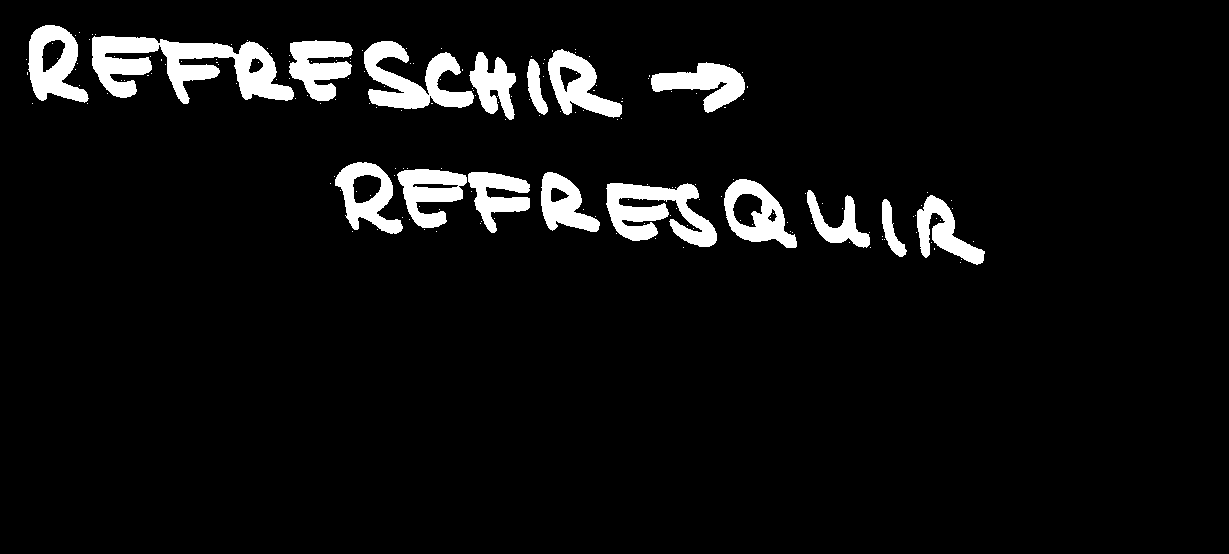 REFRESCHIR →
REFRESQUIR